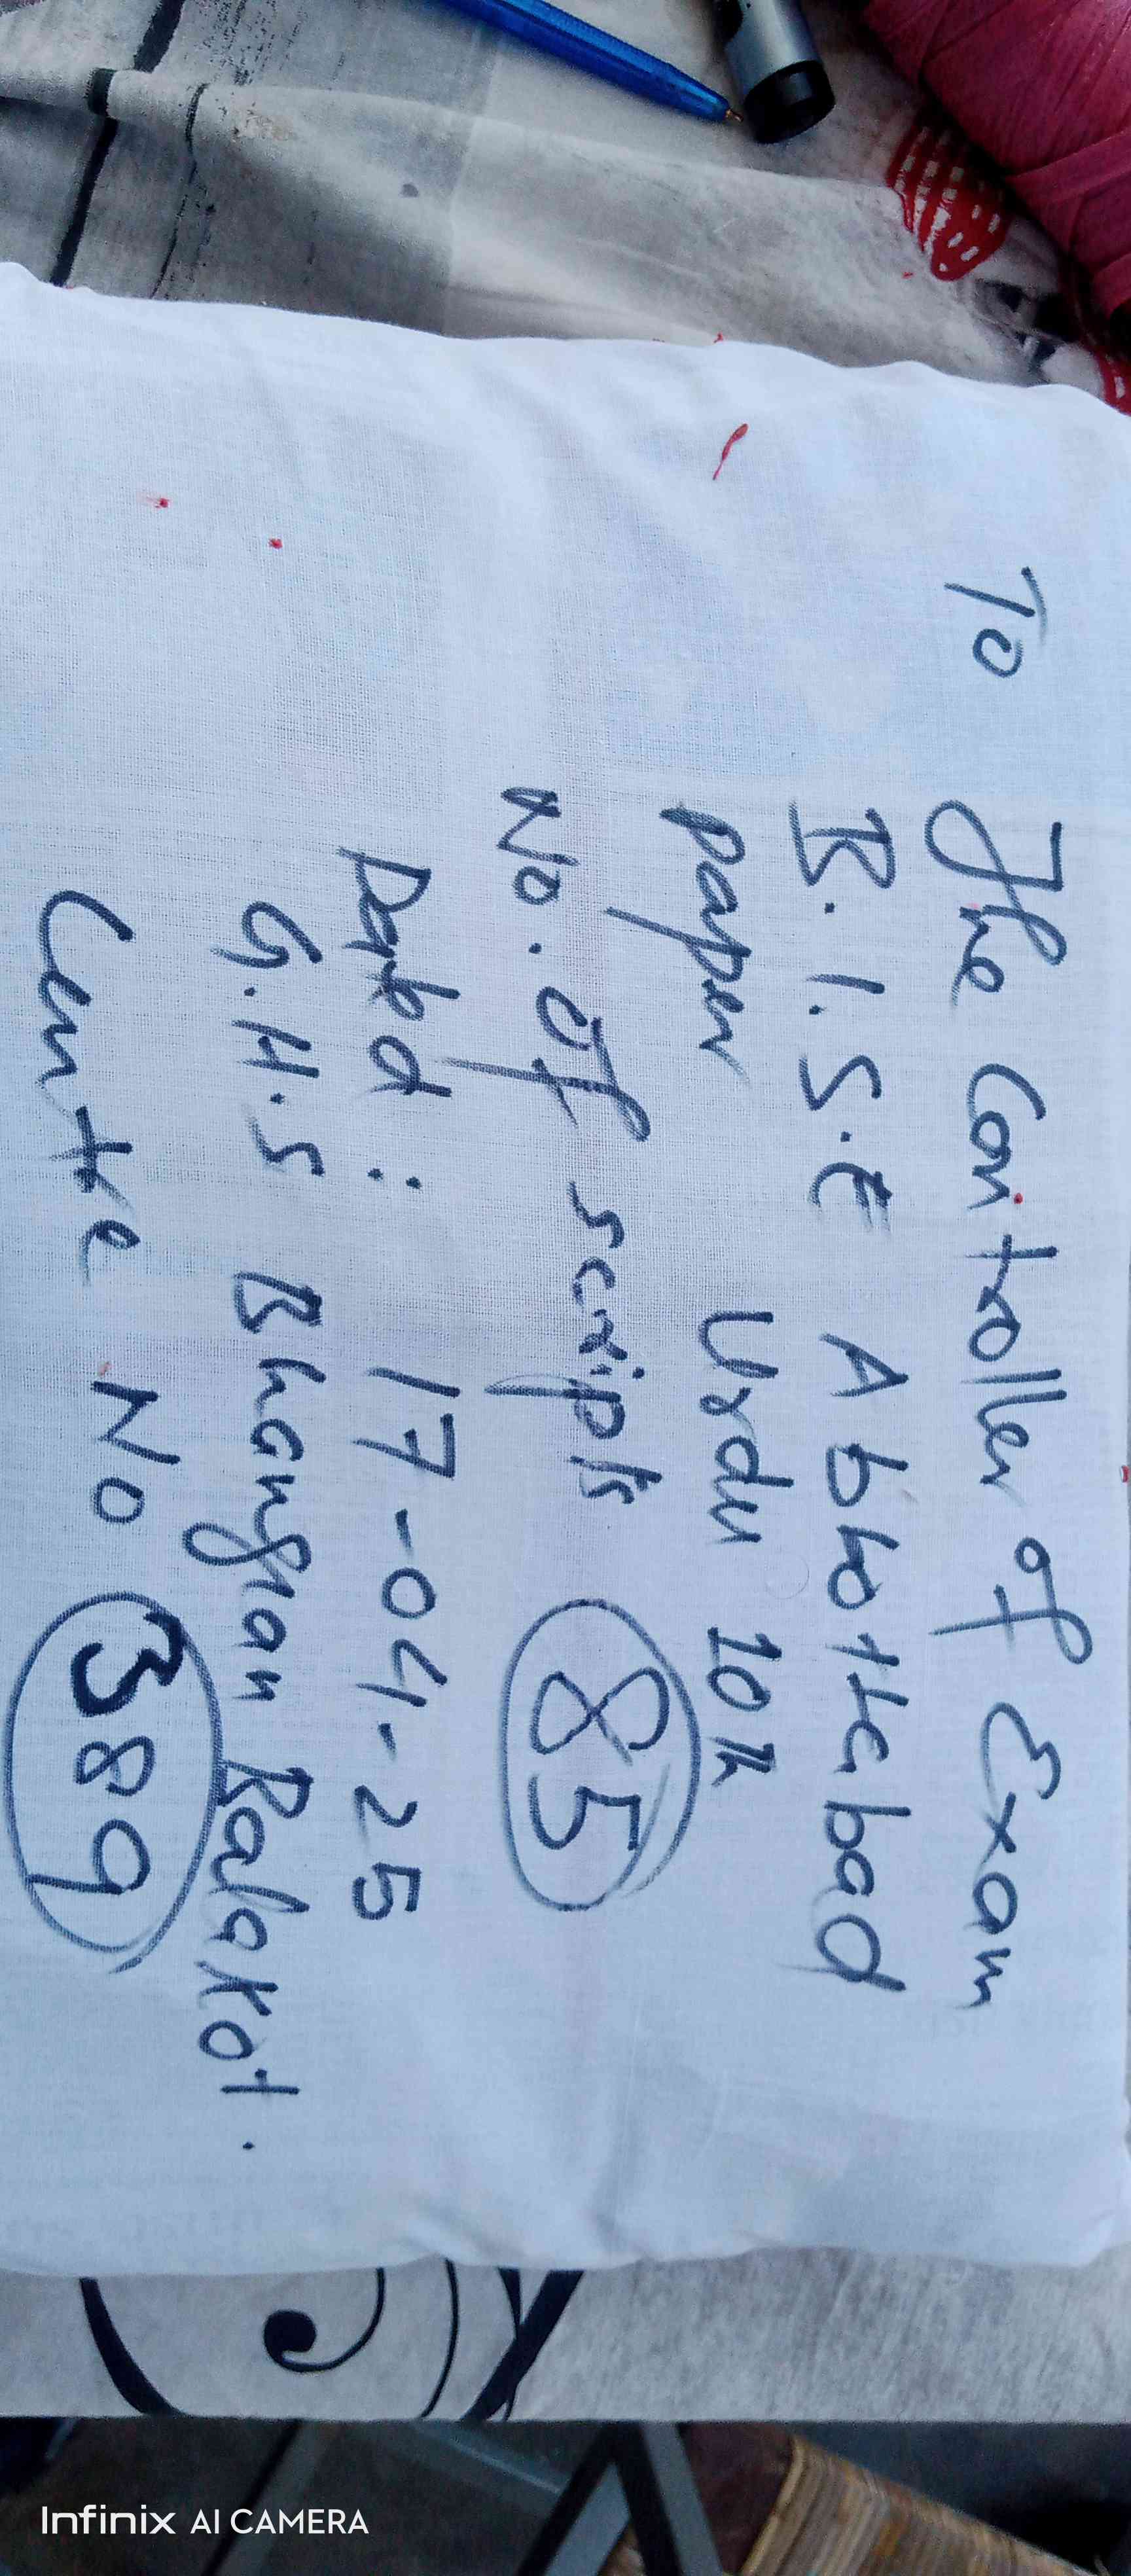 To
The Controller of Exam
B.I.S.E Abbottabad
paper Urdu 10th
No. of scripts 85
Dated : 17-04-25
G.H.S Bhangian Balakot.
Centre No 389
Infinix AI CAMERA